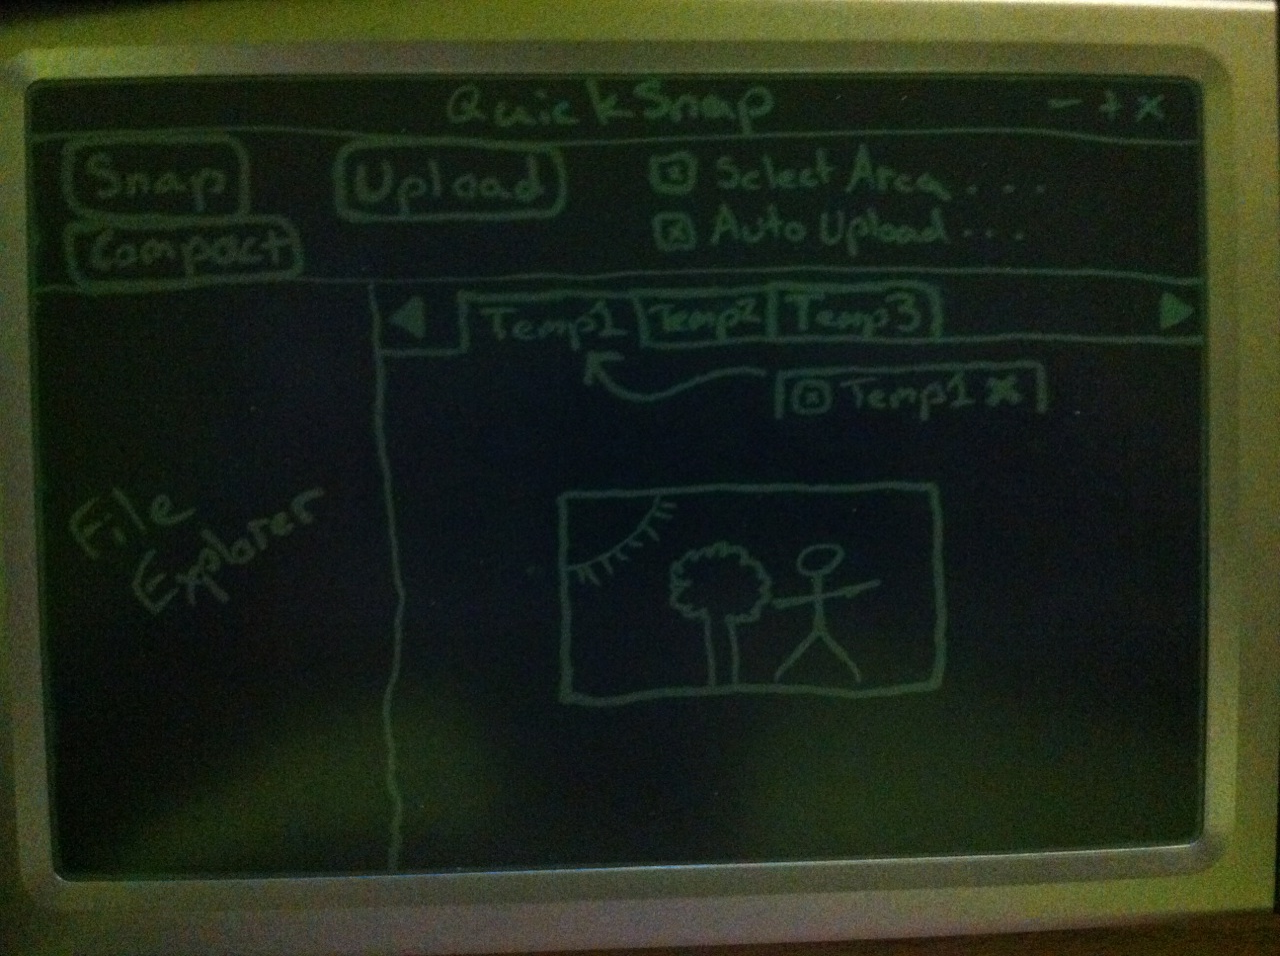 QuickSnap - + x
Snap Upload Select Area . . .
Compact Auto Upload . . .
Temp1 Temp2 Temp3
Temp1 x
File
Explorer